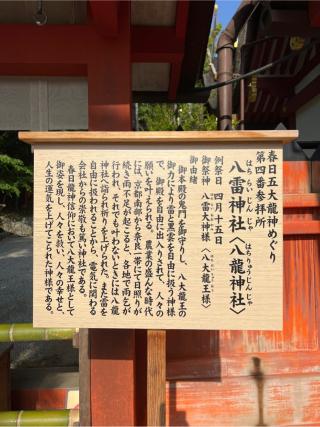 春日五大龍神めぐり
第四番参拝所
八雷神社〈八龍神社〉
はちらいじんじゃ　はちりゅうじんじゃ
例祭日　四月十五日
御祭神　八雷大神様〈八大龍王様〉
御由緒
御本殿の鬼門を御守りし、八大龍王の
御力により雷と黒雲を自由に扱う神様
で、御殿を自由に出入りされて、人々の
願いを叶えられる。農業の盛んな時代
には、京都南部から奈良一帯にて日照りが
続き雨不足が起こると、各地で雨乞が
行われ、それでも叶わないときには八龍
神社へ詣られ祈りを上げられた。また雷を
自由に扱われることから、電気に関わる
会社からの崇敬も篤い神社である。
春日龍神信仰において八大龍王様として
御姿を現し、すべてを救い、人々の幸せと、
人生の運気を上げてこられた神様である。